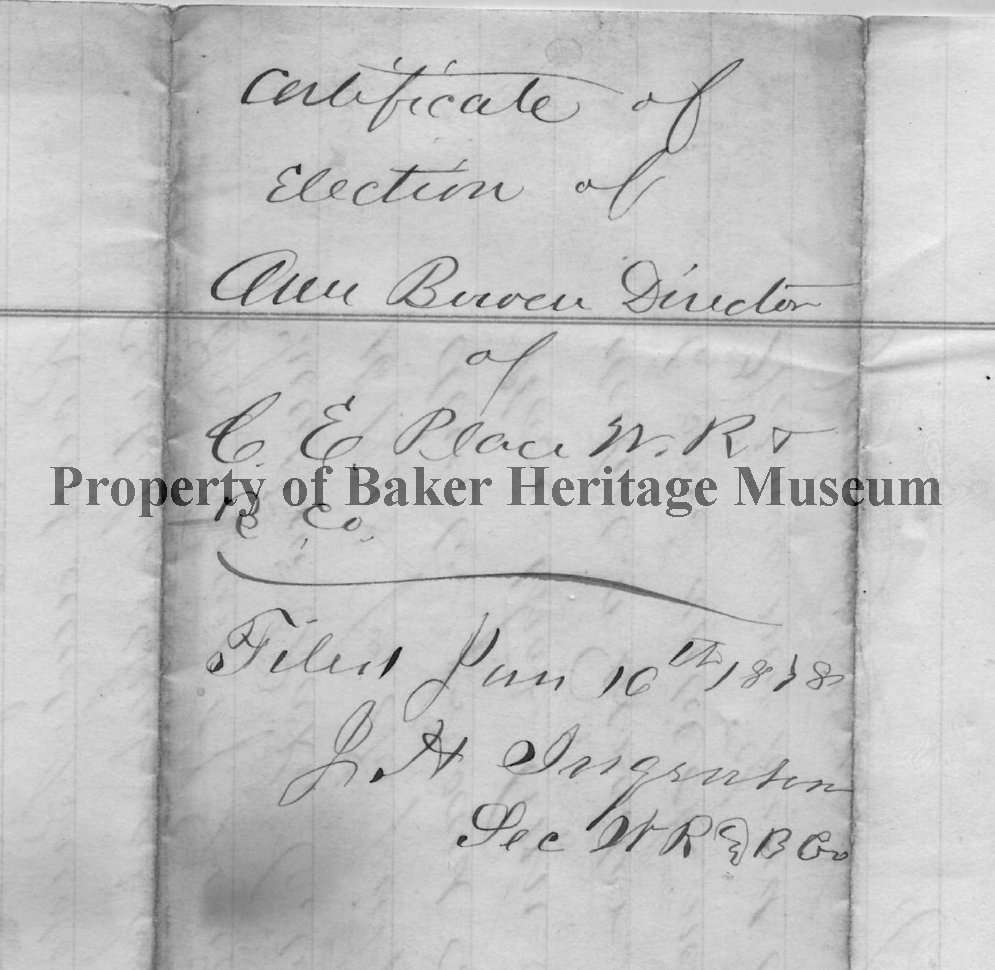 Certificate of
Election of
Ann Bowen Director
of
C. E. Place W. R &
Property of Baker Heritage Museum
B Co.
Filed Jun 10th 1878
J. H
Sec W R & B Co